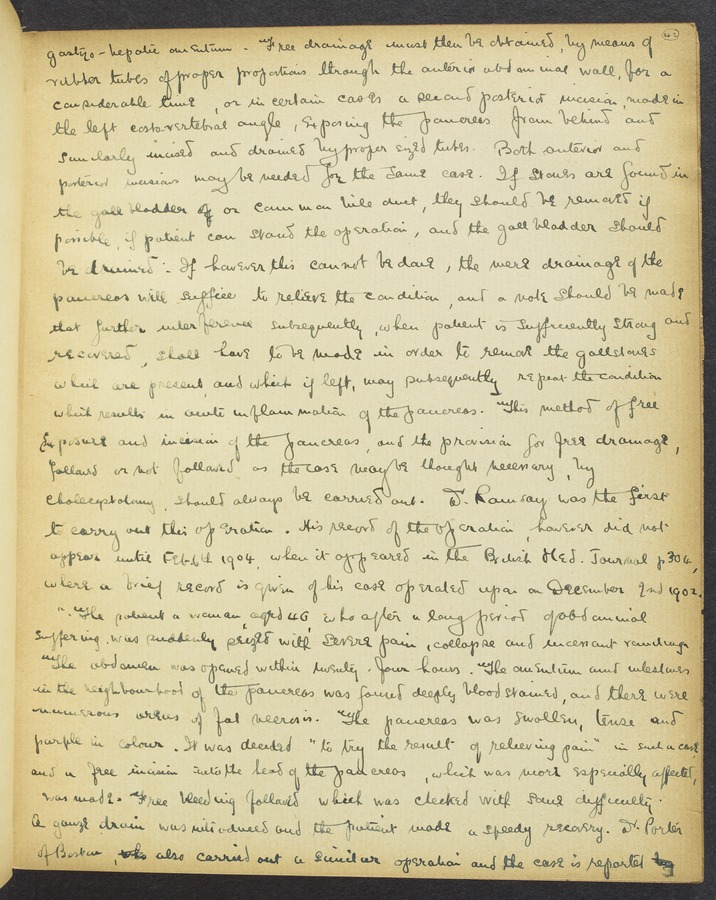 42
gastro-hepatic omentum. Free drainage must then be obtained, by means of
rubber tubes of proper proportions through the anterior abdominal wall, for a
considerable time, or in certain cases a second posterior incision, made in
the left costo-vertebral angle, exposing the pancreas from behind and
similarly incised and drained by proper sized tubes. Both anterior and
posterior incisions may be needed for the same case. If stones are found in
the gall bladder or common bile duct, they should be removed if
possible, if patient can stand the operation, and the gall bladder should
be drained. If however this cannot be done, the mere drainage of the
pancreas will suffice to relieve the condition, and a note should be made
that further interference subsequently, when patient is sufficiently strong and
recovered, shall have to be made in order to remove the gallstones
which are present and which if left, may subsequently repeat the condition
which results in acute inflammation of the pancreas. This method of free
exposure and incision of the pancreas, and the provision for free drainage,
followed or not followed as the case may be thought necessary, by
cholecystotomy, should always be carried out. D. Ramsay was the first
to carry out this operation. His record of the operation, however did not
appear until Feb 6th 1904, when it appeared in the British Med. Journal p 304,
where a brief record is given of his case operated upon on December 2nd 1902.
". The patient a woman, aged 46, who after a long period of abdominal
suffering, was suddenly seized with severe pain, collapse and incessant vomiting.
The abdomen was opened within twenty-four hours. The omentum and intestines
in the neighbourhood of the pancreas was found deeply blood stained, and there were
numerous areas of fat necrosis. The pancreas was swollen, tense and
purple in colour. It was decided "to try the result of relieving pain" in such a case
and a free incision into the head of the pancreas, which was more especially affected,
was made. Free bleeding followed which was checked with some difficulty.
A gauze drain was introduced and the patient made a speedy recovery. D. Porter
of Boston, also carried out a similar operation and the case is reported by